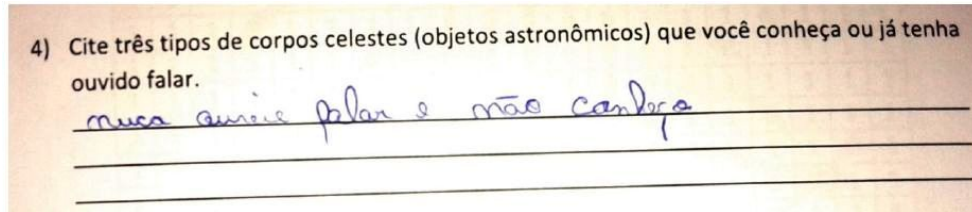 4) Cite três tipos de corpos celestes (objetos astronômicos) que você conheça ou já tenha
ouvido falar.
nuca falar e não conheça